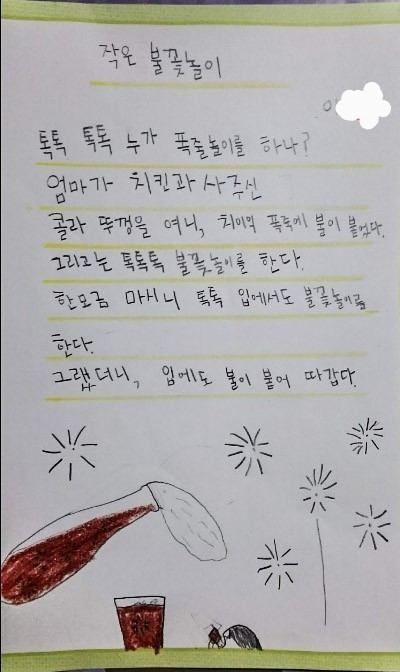 작은 불꽃놀이
톡톡 톡톡 누가 폭줄놀이를 하나?
엄마가 치킨과 사주신
콜라 뚜껑을 여니, 치이익 폭죽에 불이 붙었다.
그리고는 톡톡톡 불꽃놀이를 한다.
한모금 마시니 톡톡 입에서도 불꽃놀이를
한다.
그랬더니, 입에도 불이 붙어 따갑다.